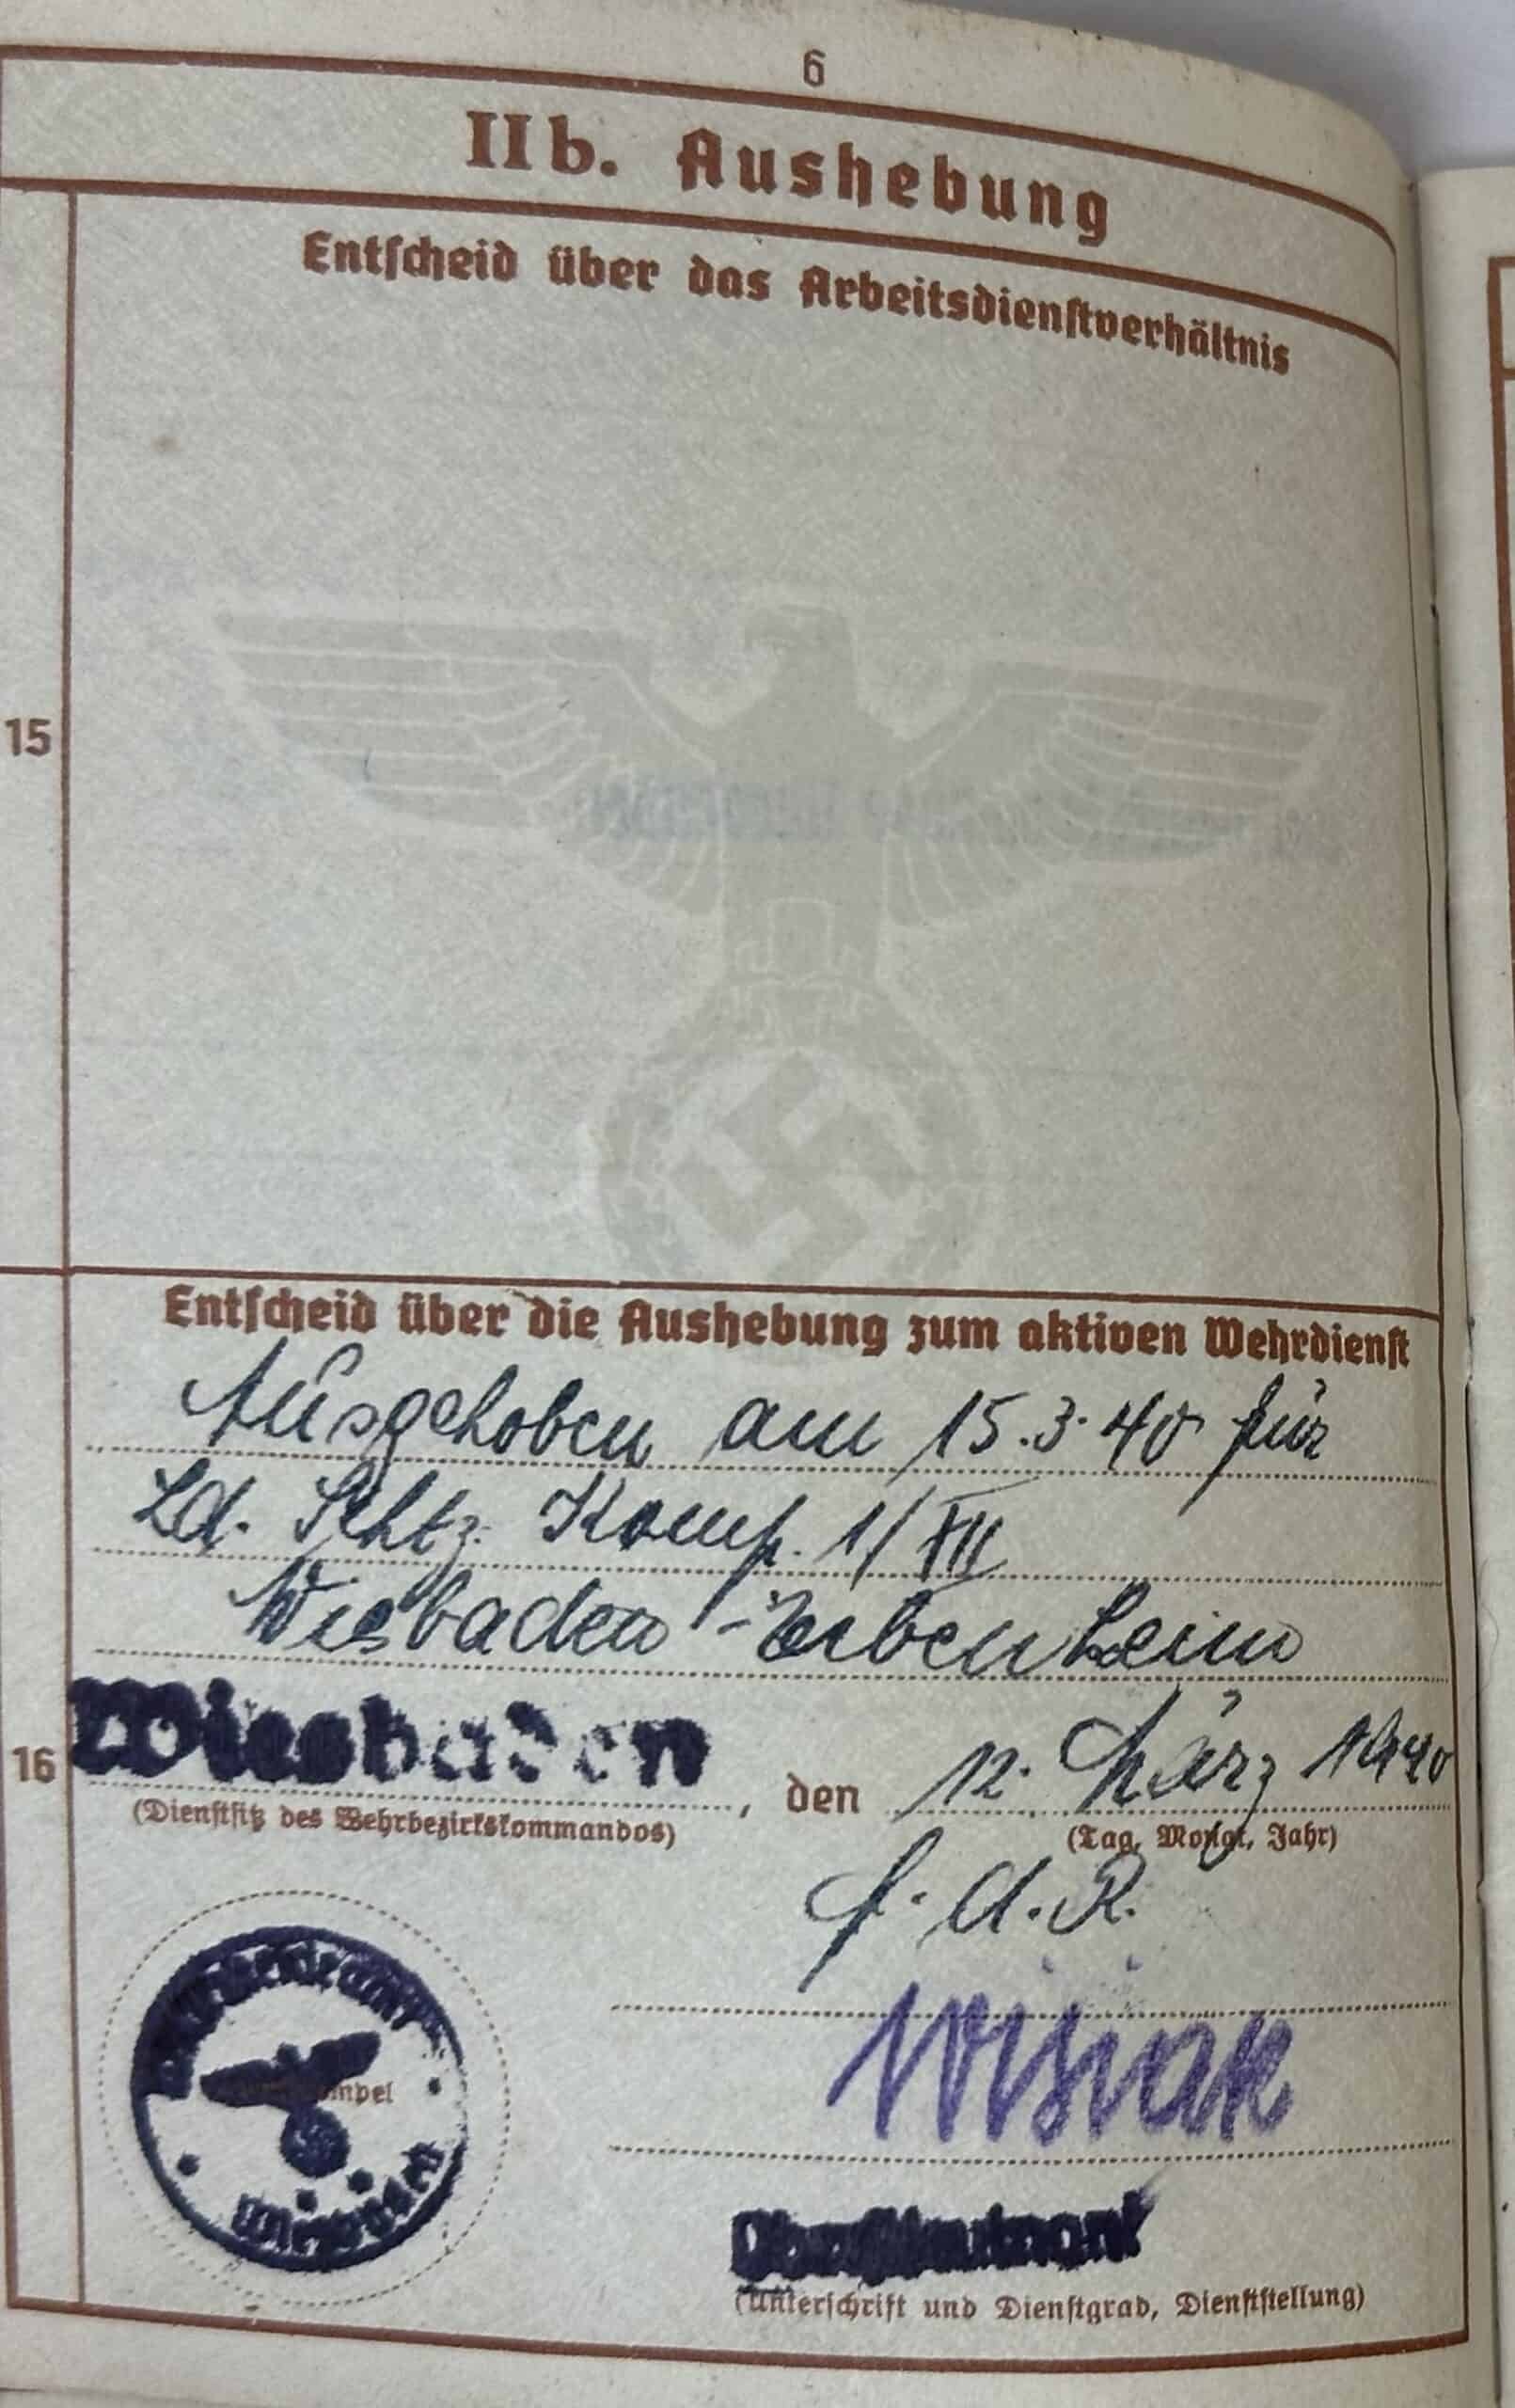 6
IIb. Aushebung
Entscheid über das Arbeitsdienstverhältnis
15
Entscheid über die Aushebung zum aktiven Wehrdienst
Ausgehoben am 15.3.40 für
Ld. Schtz. Komp. 1/XII
Wiesbaden-Erbenheim
16
Wiesbaden, den 12. März 1940
(Dienstsitz des Wehrbezirkskommandos)
(Tag, Monat, Jahr)
f. d. R.
Wiesbaden
Oberstleutnant
(Unterschrift und Dienstgrad, Dienststellung)